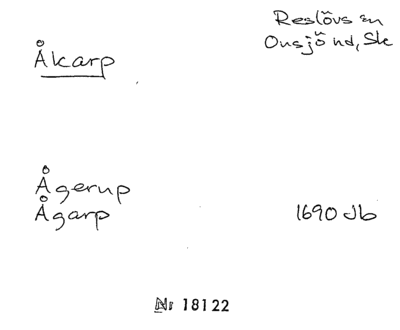 Reslövs sn
Onsjö hd, Sk
Åkarp
Ågerup
Ågarp 1690 Jb
Nr 18122